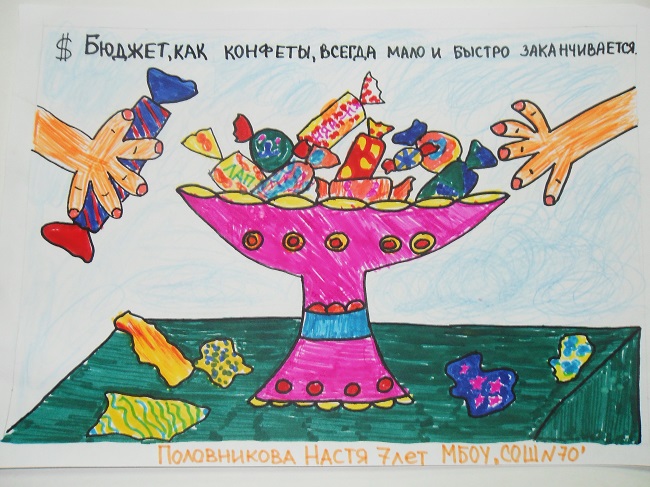 $ Бюджет, как конфеты, всегда мало и быстро заканчивается.
ЛАП
Половникова Настя 7 лет МБОУ „СОШ N 70'